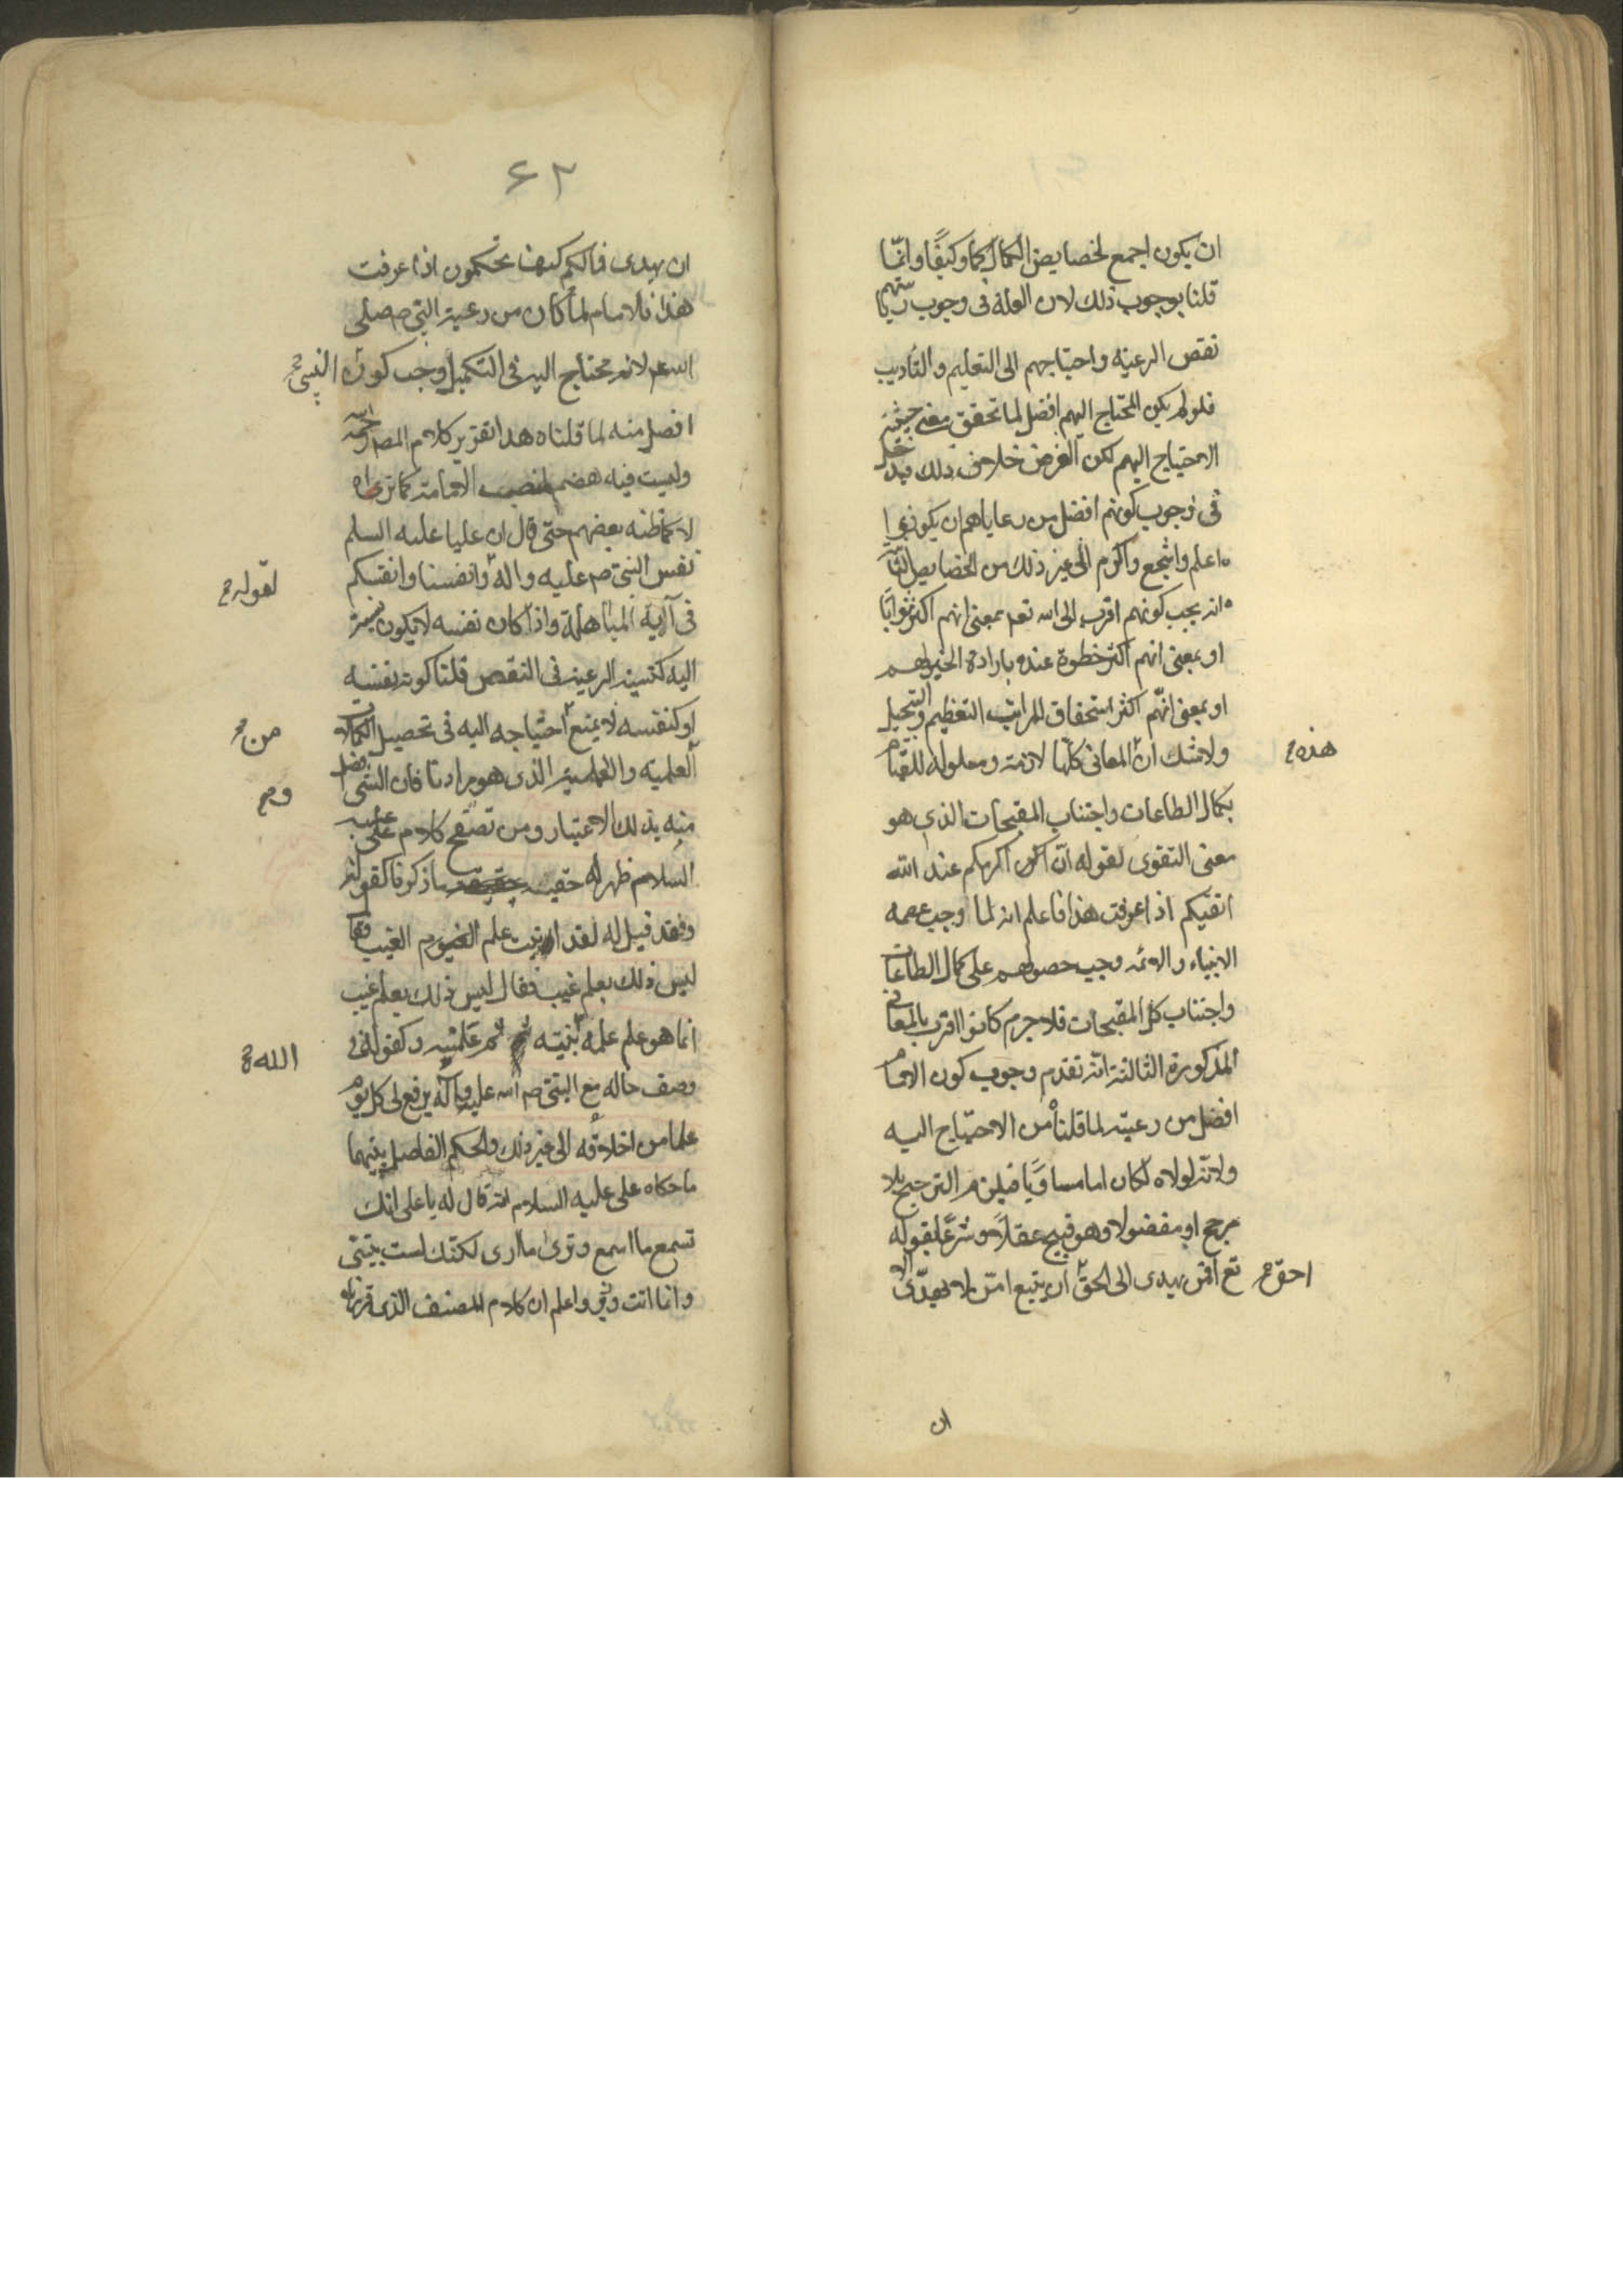 ان يكون اجمع لخصايص الكمال كمّا وكيفًا وانّما
قلنا بوجوب ذلك لان العلة فى وجوب رياستهم
نقص الرعيّه واحتياجهم الى التعليم والتأديب
فلو لم يكن المحتاج اليهم افضل لما تحقق معنى حيثية
الاحتياج اليهم لكن الفرض خلاف ذلك فيدخل
فى وجوب كونهم افضل من رعاياهم ان يكونوا
اعلم واشجع واكرم الى غير ذلك من الخصايص الثانية
انه يجب كونهم اقرب الى الله تعم بمعنى انهم اكثر ثوابًا
او بمعنى انهم اكثر خطوة عنده بارادة الخير لهم
او بمعنى انّهم اكثر استحقاق لمراتب التعظيم والتبجيل
ولا شك ان المعانى كلّها لازمة ومعلوله للقيام
هذه
بكمال الطاعات واجتناب المقبحات الذى هو
معنى التقوى لقوله انّ اكرمكم عند الله
اتقيكم اذا عرفت هذا فاعلم انه لما وجب عصمه
الانبياء والائمه وجب حصولهم على كمال الطاعات
واجتناب كل المقبحات فلا جرم كانوا اقرب بالمعانى
المذكورة الثالثة انّه تقدم وجوب كون الامام
افضل من رعيته لما قلنا من الاحتياج اليه
ولانّه لولاه لكان اما مساويًا فيلزم الترجيح بلا
مرجح او مفضولا وهو قبيح عقلًا وشرعًا لقوله
تع افمن يهدى الى الحق ان يتبع امّن لا يهدّى الا
احقّ
ان
۶۲
ان يهدى فما لكم كيف تحكمون اذا عرفت
هذا فالامام لما كان من رعية النبى ص صلى
الله عم لانه محتاج اليه فى التكميل وجب كون النبى
افضل منه لما قلناه هذا تقرير كلام المصر رحمه الله
وليست فيه هضم لمنصب الامامة كما تراه
لا كما ظنه بعضهم حتى قال ان عليا عليه السلم
نفس النبى ص عليه واله وانفسنا وانفسكم
لقوله
فى آلاية المباهلة واذا كان نفسه لا يكون نسبته
اليه كنسبة الرعية فى النقص قلنا كونه نفسه
او كنفسه لا يمنع احتياجه اليه فى تحصيل الكمالات
من
العلميه والعملية الذى هو مرادنا فان الشى افضل
وم
منه بذلك الاعتبار ومن تصفح كلام على عليه
السلام ظهر له حقية ما ذكرنا كقوله
وقد قيل له لقد اوتيت علم الغيب فقا
ليس ذلك بعلم غيب فقال ليس ذلك بعلم غيب
انما هو علم علمه نبيّه ثم علمنيه وكقوله فى
الله
وصف حاله مع النبى ص الله عليه وآله يرفع لى كل يوم
علما من اخلاقه الى غير ذلك والحكم الفاصل بينهما
ما حكاه على عليه السلام انه قال له يا على انك
تسمع ما اسمع وترى ما ارى لكنّك لست بنبىّ
وانا انت وفى واعلم ان كلام المصنف الذى قررناه